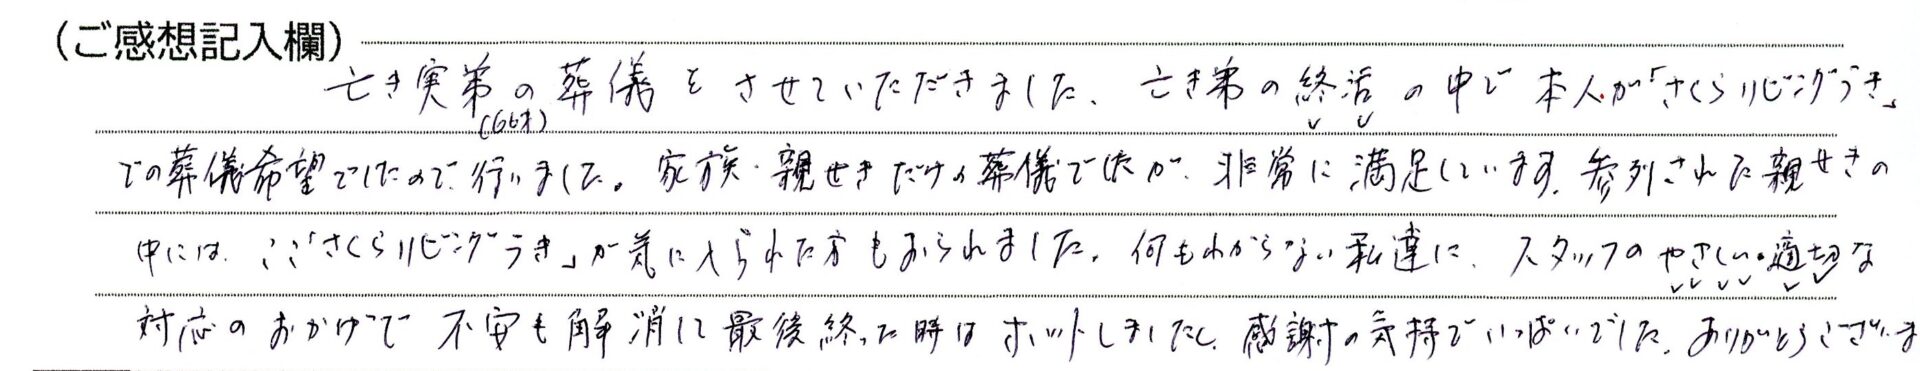 (ご感想記入欄)
亡き実弟の葬儀をさせていただきました、亡き弟の終活の中で本人が「さくらリビングうき」
(66才)
での葬儀希望でしたので、行いました。家族・親せきだけの葬儀でしたが、非常に満足しています。参列された親せきの
中には、ここ「さくらリビングうき」が気に入られた方もおられました。何もわからない私達に、スタッフのやさしい・適切な
対応のおかげで不安も解消して最後終った時はホットしましたし、感謝の気持でいっぱいでした、ありがとうございま